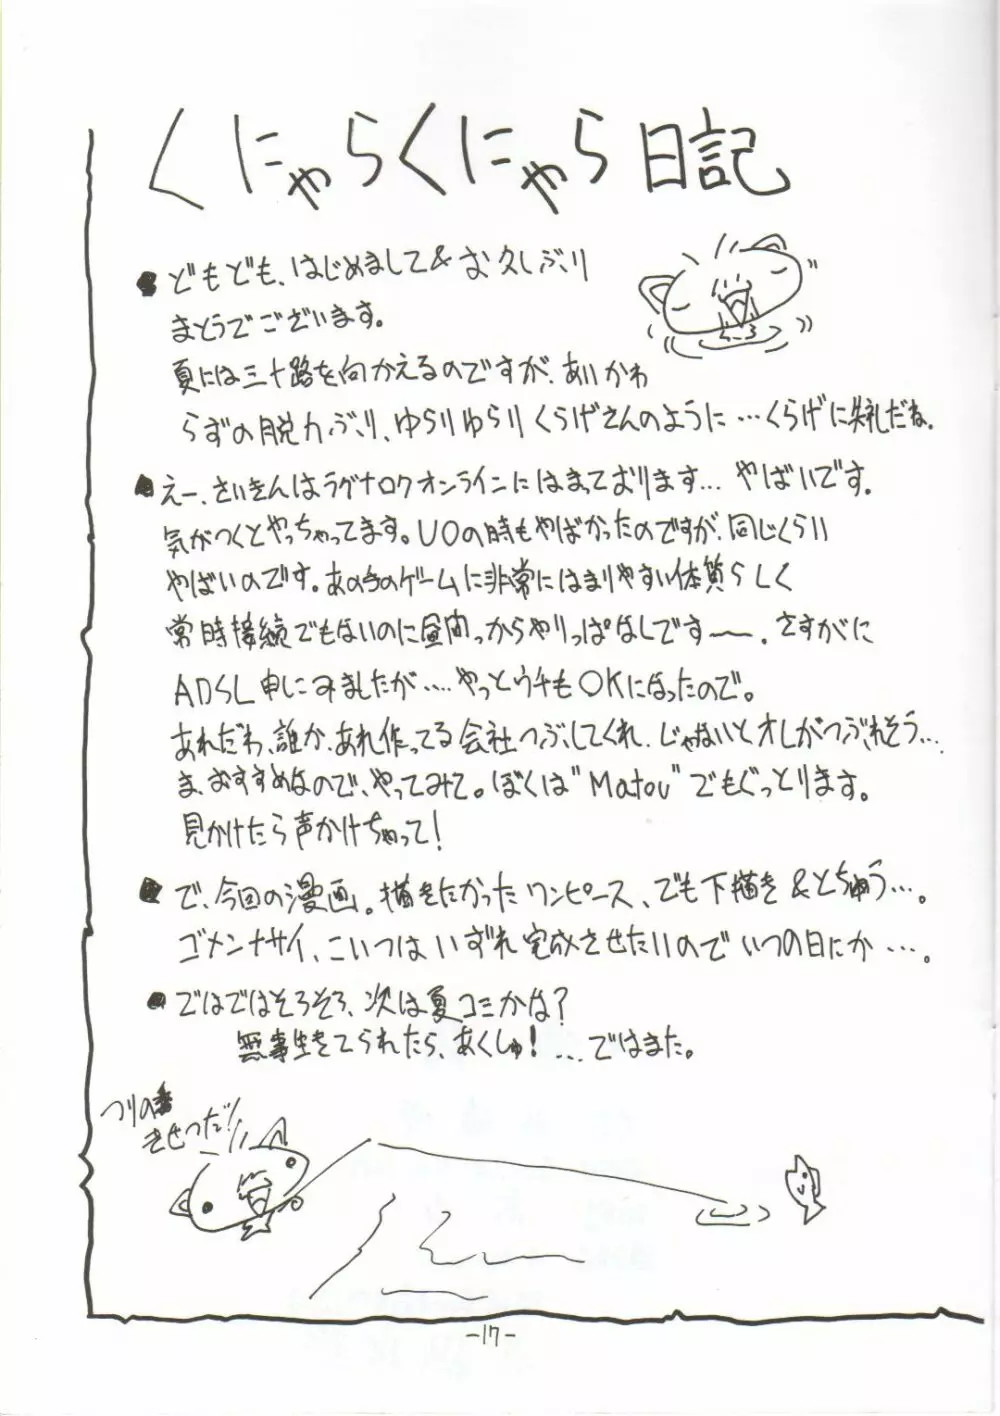 くにゃらくにゃら日記
どもども、はじめまして&お久しぶり
まとうでございます。
夏には三十路を向かえるのですが、あいかわ
らずの脱力ぶり、ゆらりゆらりくらげさんのように…くらげに失礼だね。
えー、さいきんはラグナロクオンラインにはまっております… やばいです。
気がつくとやっちゃってます。UOの時もやばかったのですが、同じくらい
やばいのです。あの手のゲームに非常にはまりやすい体質らしく
常時接続でもないのに昼間っからやりっぱなしです〜。さすがに
ADSL申しこみましたが‥‥やっとウチもOKになったので。
あれだわ、誰か、あれ作ってる会社つぶしてくれ、じゃないとオレがつぶれそう…
ま、おすすめなので、やってみて。ぼくは"Matou"でもぐっとります。
見かけたら声かけちゃって!
で、今回の漫画。描きたかったワンピース、でも下描き&とちゅう…。
ゴメンナサイ、こいつはいずれ完成させたいのでいつの日にか…。
ではではそろそろ、次は夏コミかな?
無事生きてられたら、あくしゅ!…ではまた。
つりの
きせつだ!!
-17-